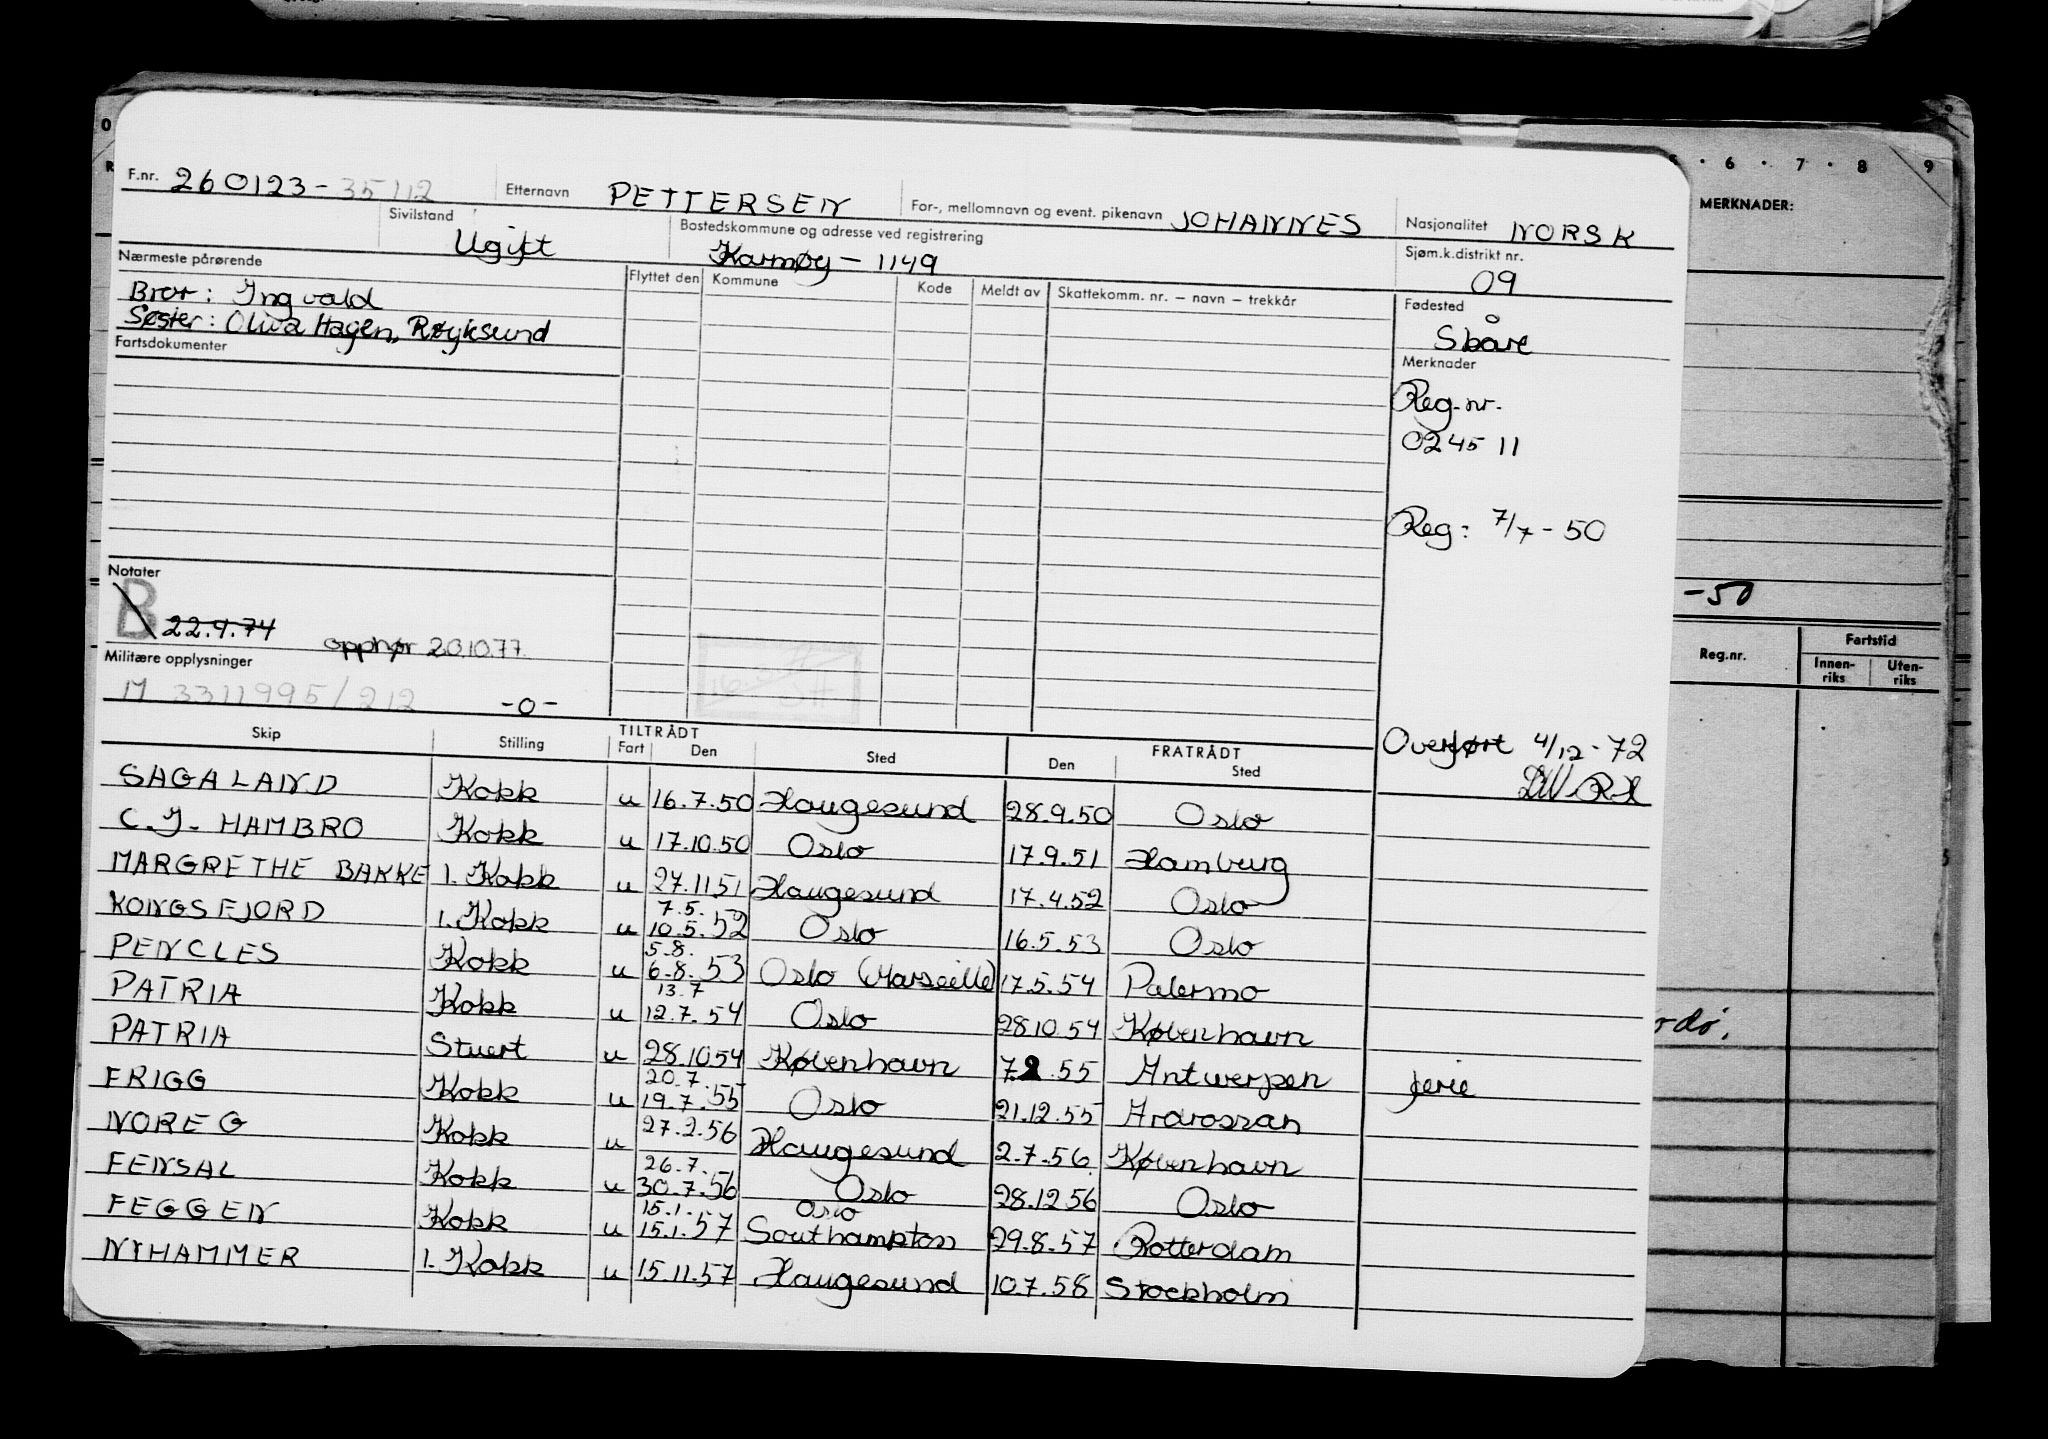 F.nr. 260123-35112 Etternavn PETTERSEN For-, mellomnavn og event. pikenavn JOHANNES Nasjonalitet NORSK
Sivilstand Ugift Bostedskommune og adresse ved registrering Karmøy - 1149 Sjøm.k.distrikt nr. 09
Nærmeste pårørende Flyttet den Kommune Kode Meldt av Skattekomm. nr. - navn - trekkår Fødested
Bror: Ingvald
Søster: Oliva Hagen, Røyksund Skåre
Fartsdokumenter Merknader
Reg.nr.
024511
Reg: 7/7-50
Notater
B 22.9.74 opphør 20.10.77.
Militære opplysninger
M 3311995/212 -0-
Overført 4/12-72
Skip Stilling TILTRÅDT Fart Den Sted FRATRÅDT Den Sted
SAGALAND Kokk u 16.7.50 Haugesund 28.9.50 Oslo
C.J. HAMBRO Kokk u 17.10.50 Oslo 17.9.51 Hamburg
MARGRETHE BAKKE 1. Kokk u 27.11 51 Haugesund 17.4.52 Oslo
7.5.
KONGSFJORD 1. Kokk u 10.5.52 Oslo 16.5.53 Oslo
5.8.
PENCLES Kokk u 6.8.53 Oslo (Marseille) 17.5.54 Palermo
13.7
PATRIA Kokk u 12.7.54 Oslo 28.10.54 København
PATRIA Stuert u 28.10.54 København 7.2.55 Antwerpen ferie
20.7.
FRIGG Kokk u 19.7.55 Oslo 21.12.55 Ardrossan
NOREG Kokk u 27.2.56 Haugesund 2.7.56 København
26.7.
FENSAL Kokk u 30.7.56 Oslo 28.12.56 Oslo
15.1. Oslo
FEGGEN Kokk u 15.1.57 Southampton 29.8.57 Rotterdam
NYHAMMER 1. Kokk u 15.11.57 Haugesund 10.7.58 Stockholm
6 · 7 · 8 9
MERKNADER:
-50
Reg.nr. Fartstid
Innen-riks Uten-riks